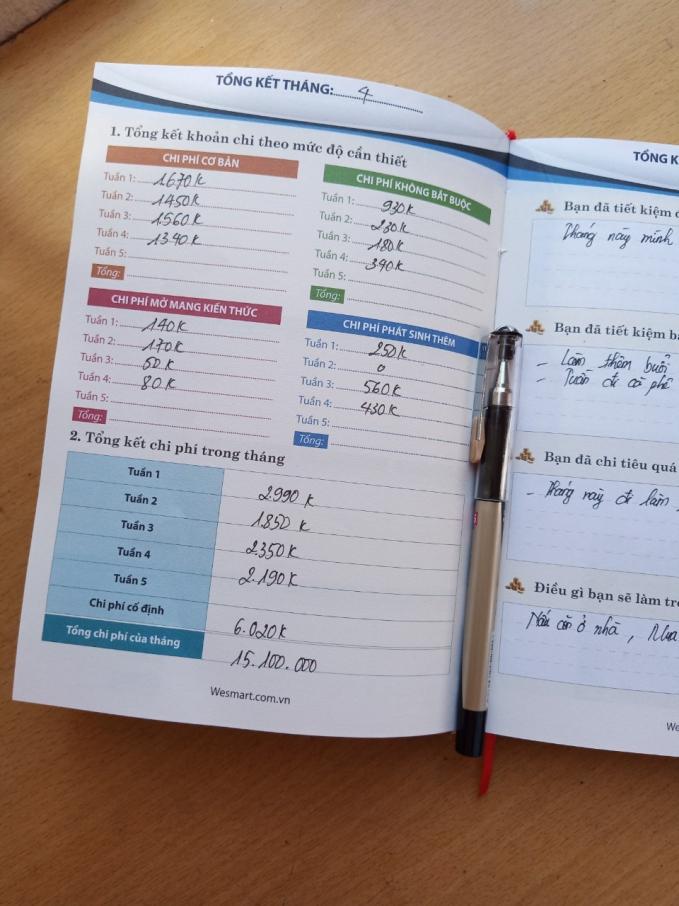 TỔNG KẾT THÁNG: 4
1. Tổng kết khoản chi theo mức độ cần thiết
CHI PHÍ CƠ BẢN
Tuần 1: 1.670k
Tuần 2: 1450k
Tuần 3: 1.560k
Tuần 4: 1340k
Tuần 5:
Tổng:
CHI PHÍ KHÔNG BẮT BUỘC
Tuần 1: 930k
Tuần 2: 230k
Tuần 3: 180k
Tuần 4: 340k
Tuần 5:
Tổng:
CHI PHÍ MỞ MANG KIẾN THỨC
Tuần 1: 140k
Tuần 2: 170k
Tuần 3: 50k
Tuần 4: 80k
Tuần 5:
Tổng:
CHI PHÍ PHÁT SINH THÊM
Tuần 1: 250k
Tuần 2: 0
Tuần 3: 560k
Tuần 4: 430k
Tuần 5:
Tổng:
2. Tổng kết chi phí trong tháng
Tuần 1 2.990k
Tuần 2 1.850k
Tuần 3 2.350k
Tuần 4 2.190k
Tuần 5
Chi phí cố định 6.020k
Tổng chi phí của tháng 15.100.000
Wesmart.com.vn
TỔNG K
Bạn đã tiết kiệm
Tháng này mình
Bạn đã tiết kiệm
- Làm thêm buổi
- Tuần đi cà phê
Bạn đã chi tiêu quá
- Tháng này đi làm
Điều gì bạn sẽ làm
Nấu ăn ở nhà, Mua
We